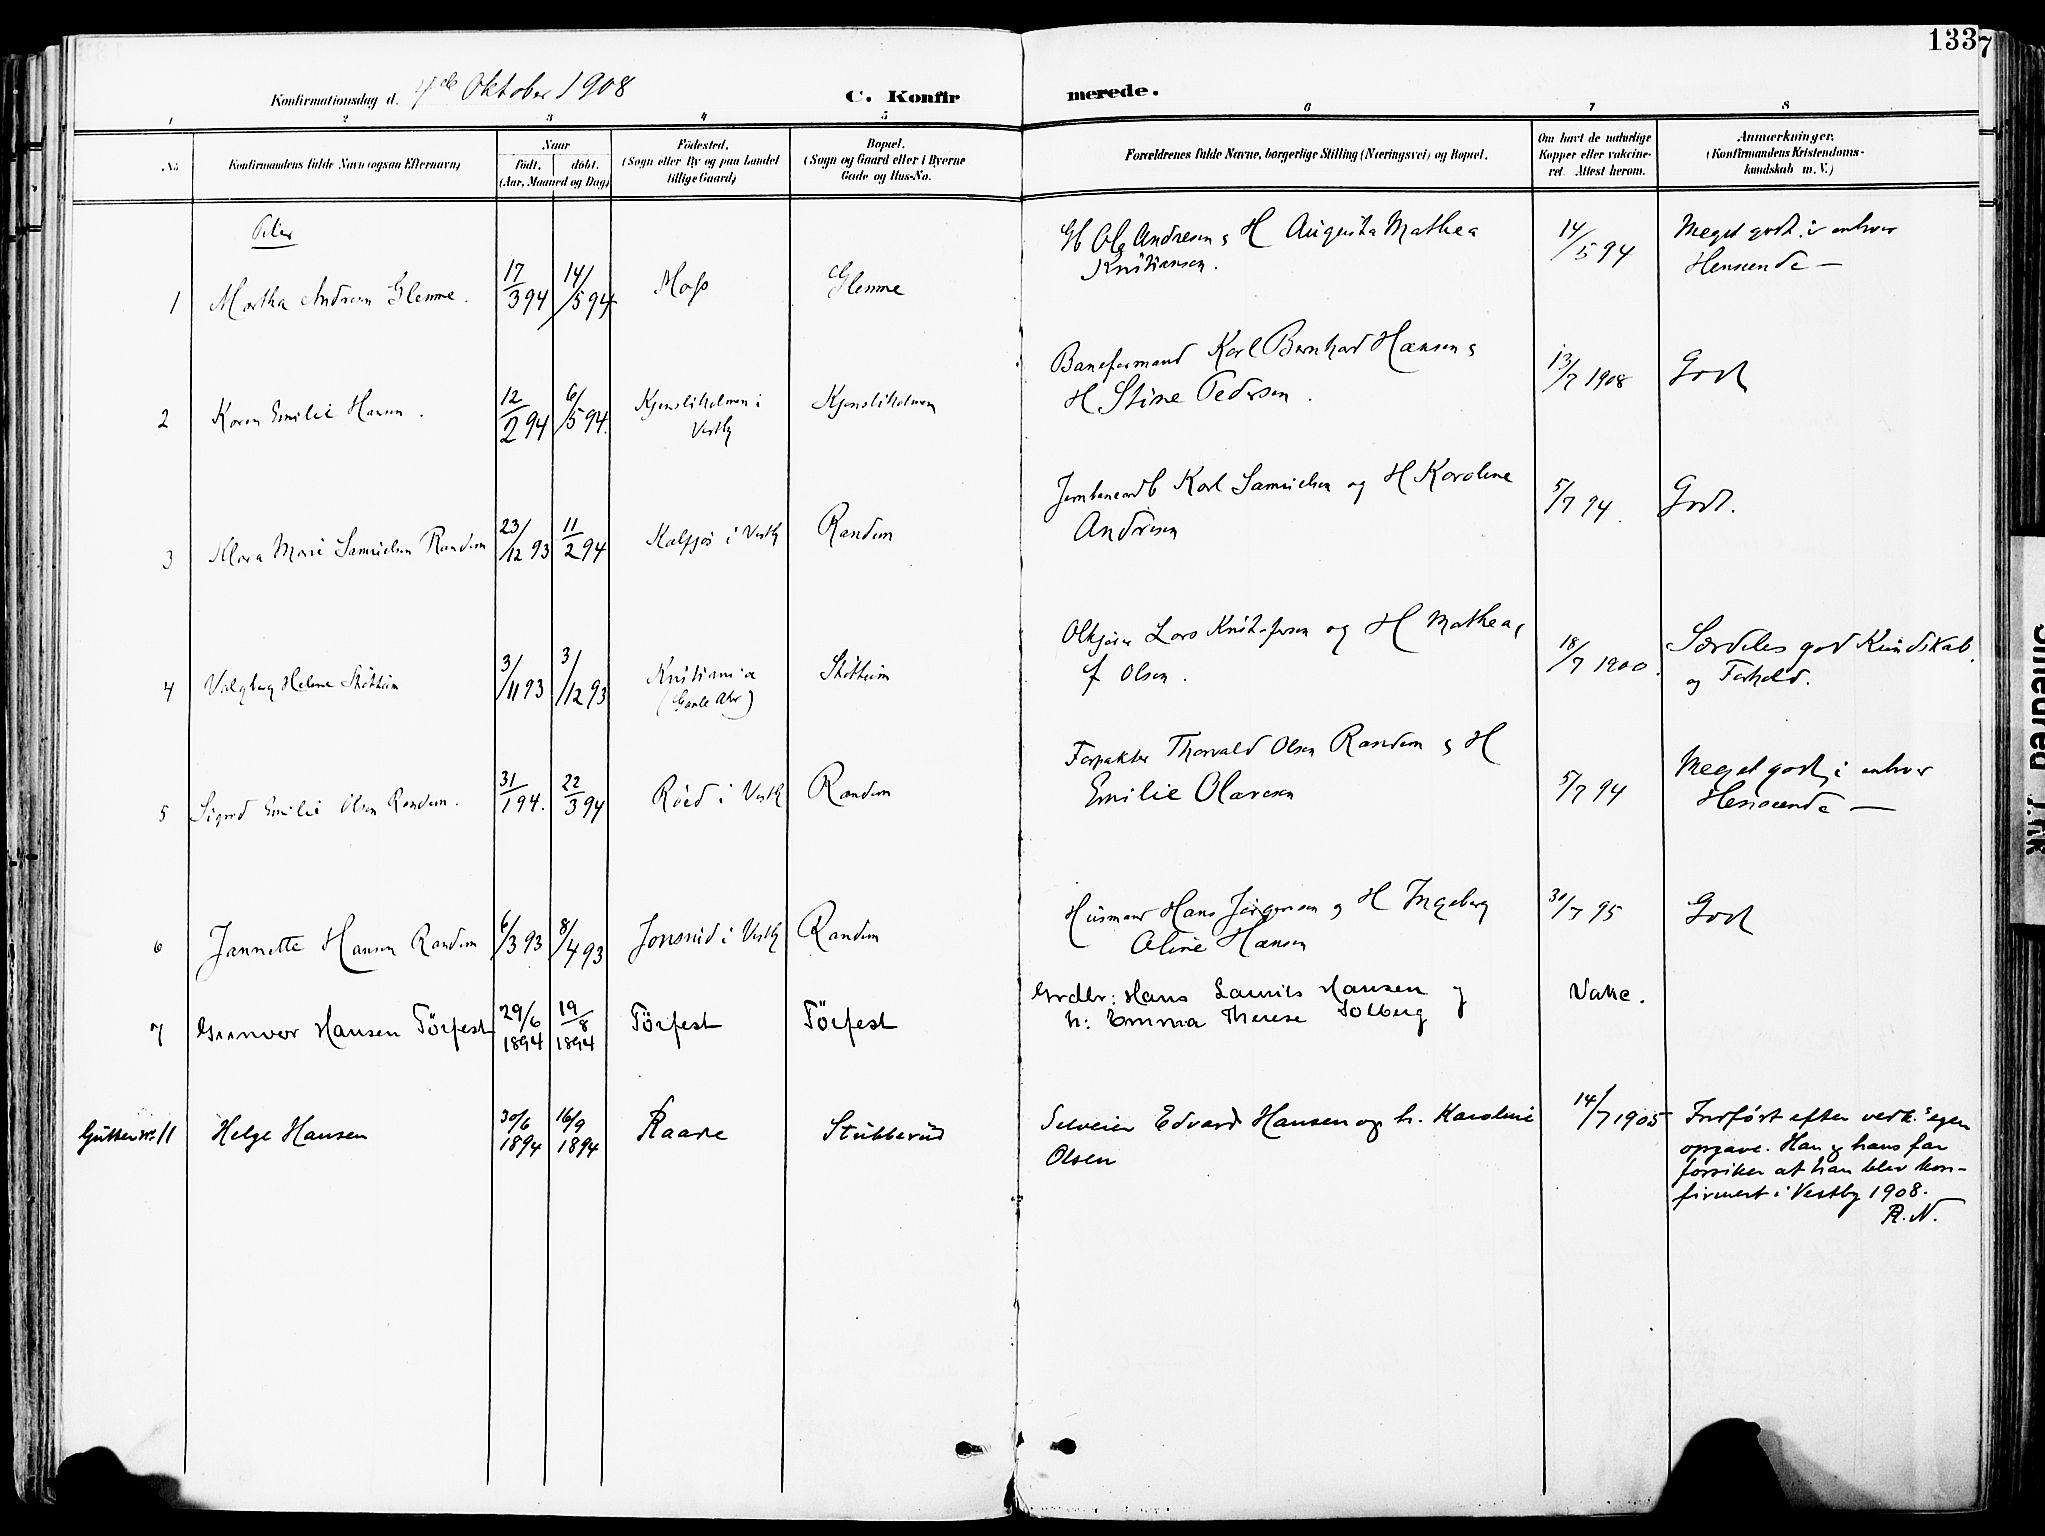 133
7
Konfirmationsdag d. 4de Oktober 1908
C. Konfirmerede.
1 2 3 4 5 6 7 8
No. Konfirmandens fulde Navn (ogsaa Efternavn) Naar född. döbt. (Aar, Maaned og Dag) Födested. (Sogn eller By og paa Landet tillige Gaard) Bopæl. (Sogn og Gaard eller i Byerne Gade og Hus-No. Forældrenes fulde Navne, borgerlige Stilling (Næringsvei) og Bopæl. Om havt de naturlige Kopper eller vaccineret. Attest herom. Anmærkninger. (Konfirmandens Kristendomskundskab m. V.)
Piker
1 Martha Andresen Glenne. 17/3 94 14/5 94 Moss Glenne Gb Ole Andresen & H Augusta Mathea
Kristiansen. 14/5 94 Meget godt i enhver
Henseende —
2 Karen Emilie Hansen. 12/2 94 6/5 94. Kjensliholmen i
Vestby Kjensliholmen Baneformand Karl Bernhard Hansen &
H Stine Pedersen. 13/7 1908 Godt
3 Klara Marie Samuelsen Randem 23/12 93 11/2 94 Kalfsjös i Vestby Randem Jernbanearb Karl Samuelsen og H Karoline
Andresen 5/7 94. Godt.
4 Valgborg Helene Støttum 3/11 93 3/12 93 Kristiania
(Gamle Aker) Støttum Lars Kristofersen og H Mathea,
f Olsen. 18/7 1900. Særdeles god Kundskab
og Forhold.
5 Sigrid Emilie Olsen Randem. 31/1 94. 22/3 94 Röed i Vestby Randem Forpakter Thorvald Olsen Randem & H
Emilie Olavesen 5/7 94 Meget godt, i enhver
Henseende —
6 Jannette Hansen Randem 6/3 93 8/4 93 Jonsrud i Vestby Randem Husmand Hans Jörgensen og H Ingeborg
Oline Hansen 30/7 95 Godt
7 Gunnvor Hansen Törfest 29/6 1894 19/8 1894 Törfest Törfest Grdbr: Hans Laurits Hansen og
h: Emma Therese Solberg Vakc.
Gutter nr. 11 Helge Hansen 30/6 1894 16/9 1894 Raade Stubberud Selveier Edvard Hansen og h. Karoline
Olsen 14/7 1905 Indført efter vedk.s egen
opgave. Han og hans far
forsikrer at han blev kon-
firmert i Vestby 1908.
R. N.